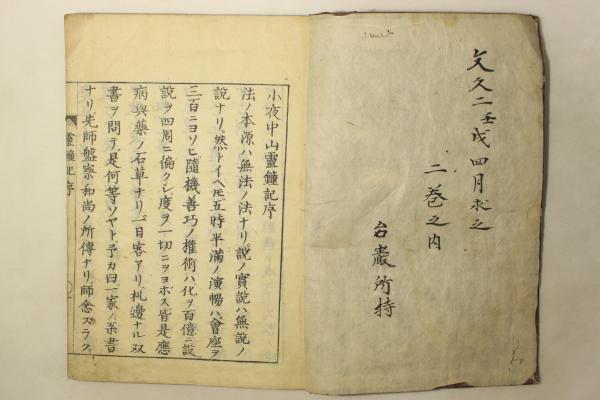 文久二壬戌四月求之
二巻之内
台巌所持
小夜中山霊鐘記序
法ノ本源ハ無法ノ法ナリ。説ノ實説ハ無説ノ
説ナリ。然トイヘトモ五時半滿ノ演暢ハ會座ヲ
三百ニヨソヒ隨機善巧ノ權術ハ化ヲ百億ニ設
説ヲ四周ニ偏クシ度ヲ一切ニヲヨボス皆是應
病與藥ノ石草ナリ。一日客アリ。札邊ナル双
書ヲ問テ是何等ソヤト。予カ曰一家ノ茶書
ナリ先師盤察和尚ノ所傳ナリ師念スラク
靈鐘記序